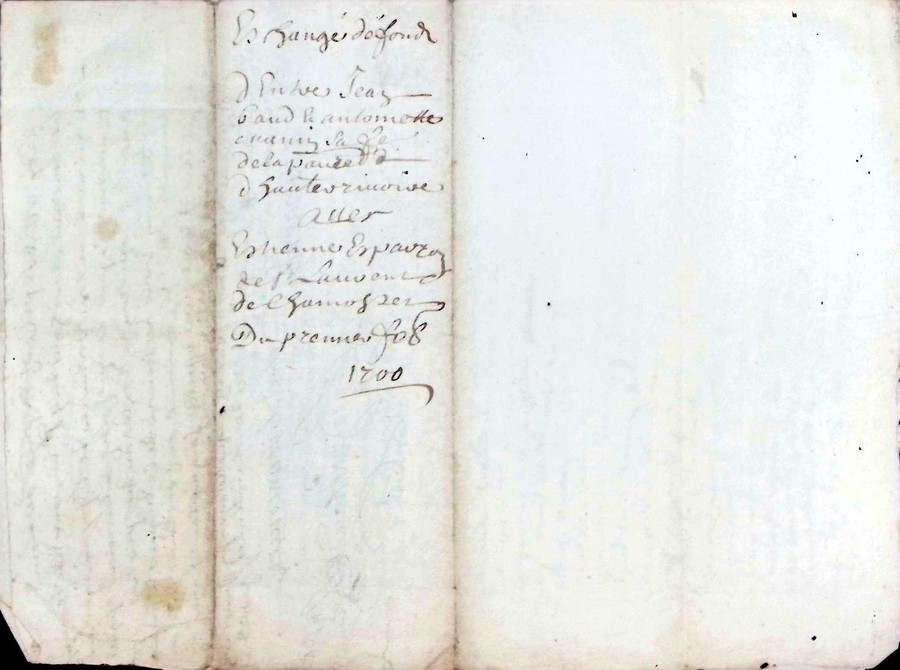 Eschangé dé fondz
d'Entre Jean
baud & antoinette
sa fe
de la parroesse d
d'hauterivoire
avec
Estienne Esparron
de St Laurent
de Chamosset
Du premier feb
1700